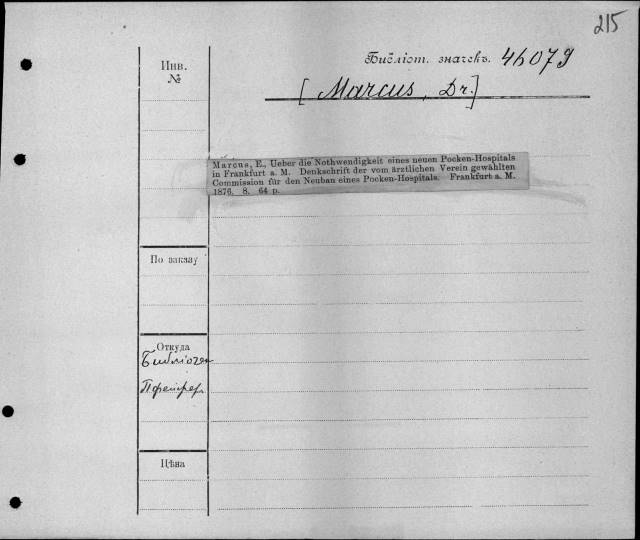 215
Библіот. значекъ. 46079
[Marcus, Dr.]
Инв.
№
Marcus, E., Ueber die Nothwendigkeit eines neuen Pocken-Hospitals
in Frankfurt a. M. Denkschrift der vom ärztlichen Verein gewählten
Commission für den Neubau eines Pocken-Hospitals. Frankfurt a. M.
1876. 8. 64 p.
По заказу
Откуда
Библіотеки
Пфейфер
Цѣна